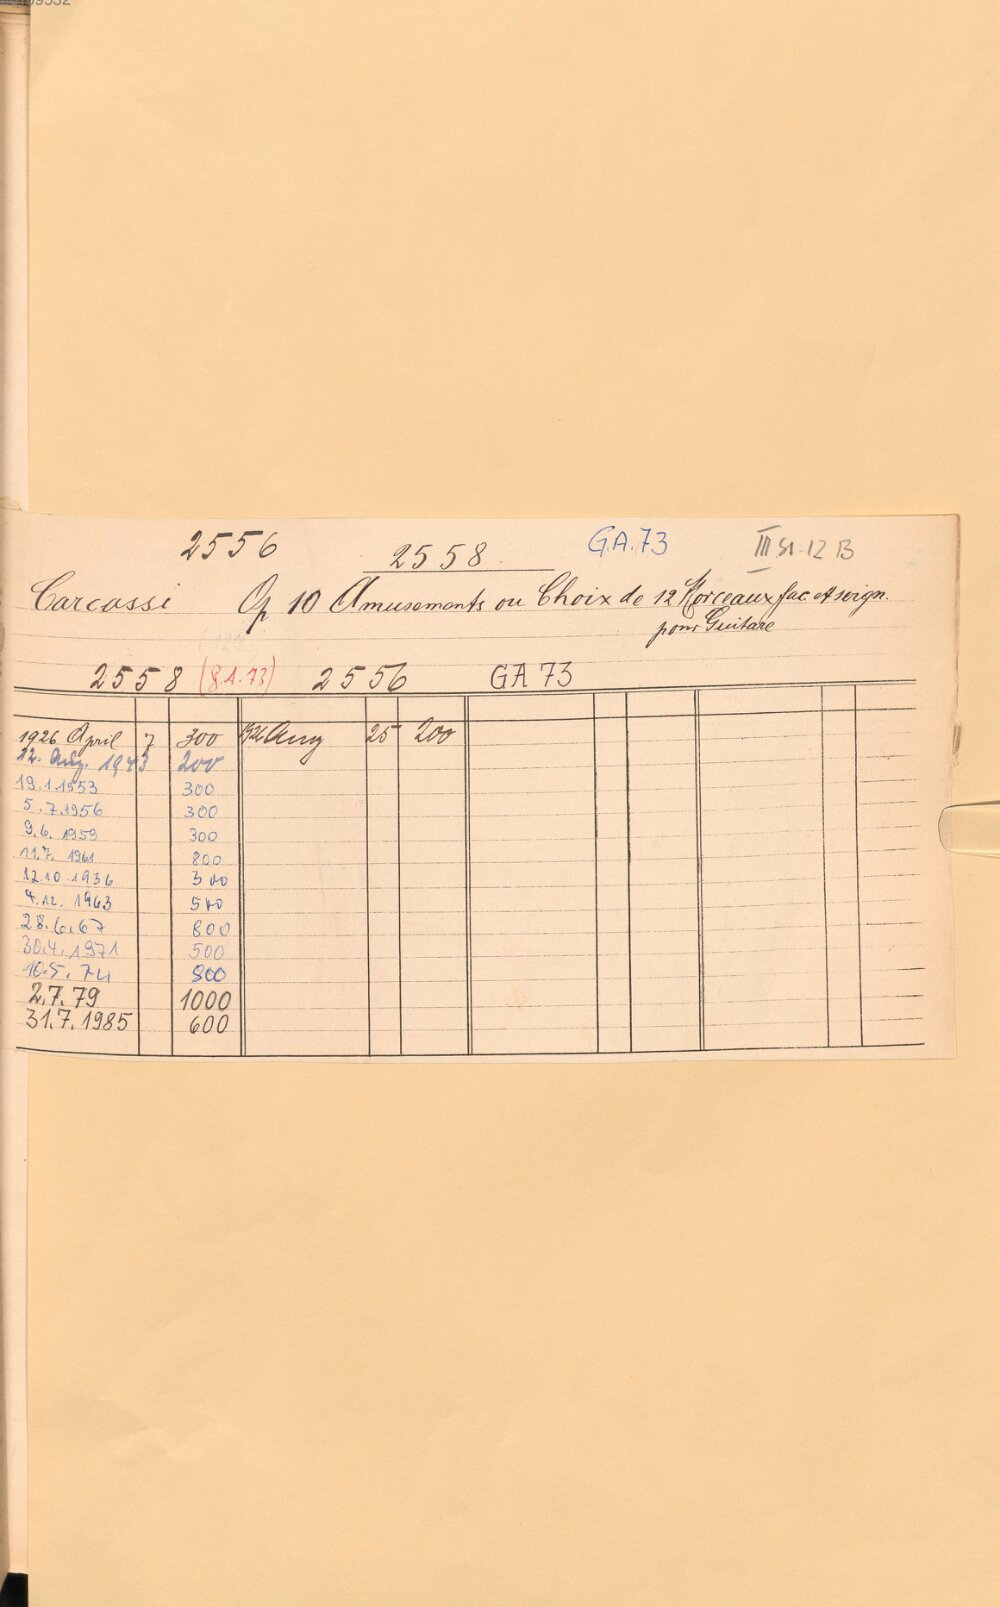 2556 2558 G.A.73 III 12 B
Carcassi Op 10 Amusements ou Choix de 12 Morceaux fac. et soign.
pour Guitare
2558 (8.1.73) 2556 GA 73
1926 April 7 300 Aug 25 200
12. Aug. 1943 200
19.1.1953 300
5.7.1956 300
9.6.1959 300
11.7.1961 800
12.10.1936 300
4.12.1963 500
28.6.67 600
30.4.1971 500
10.5.74 800
2.7.79 1000
31.7.1985 600